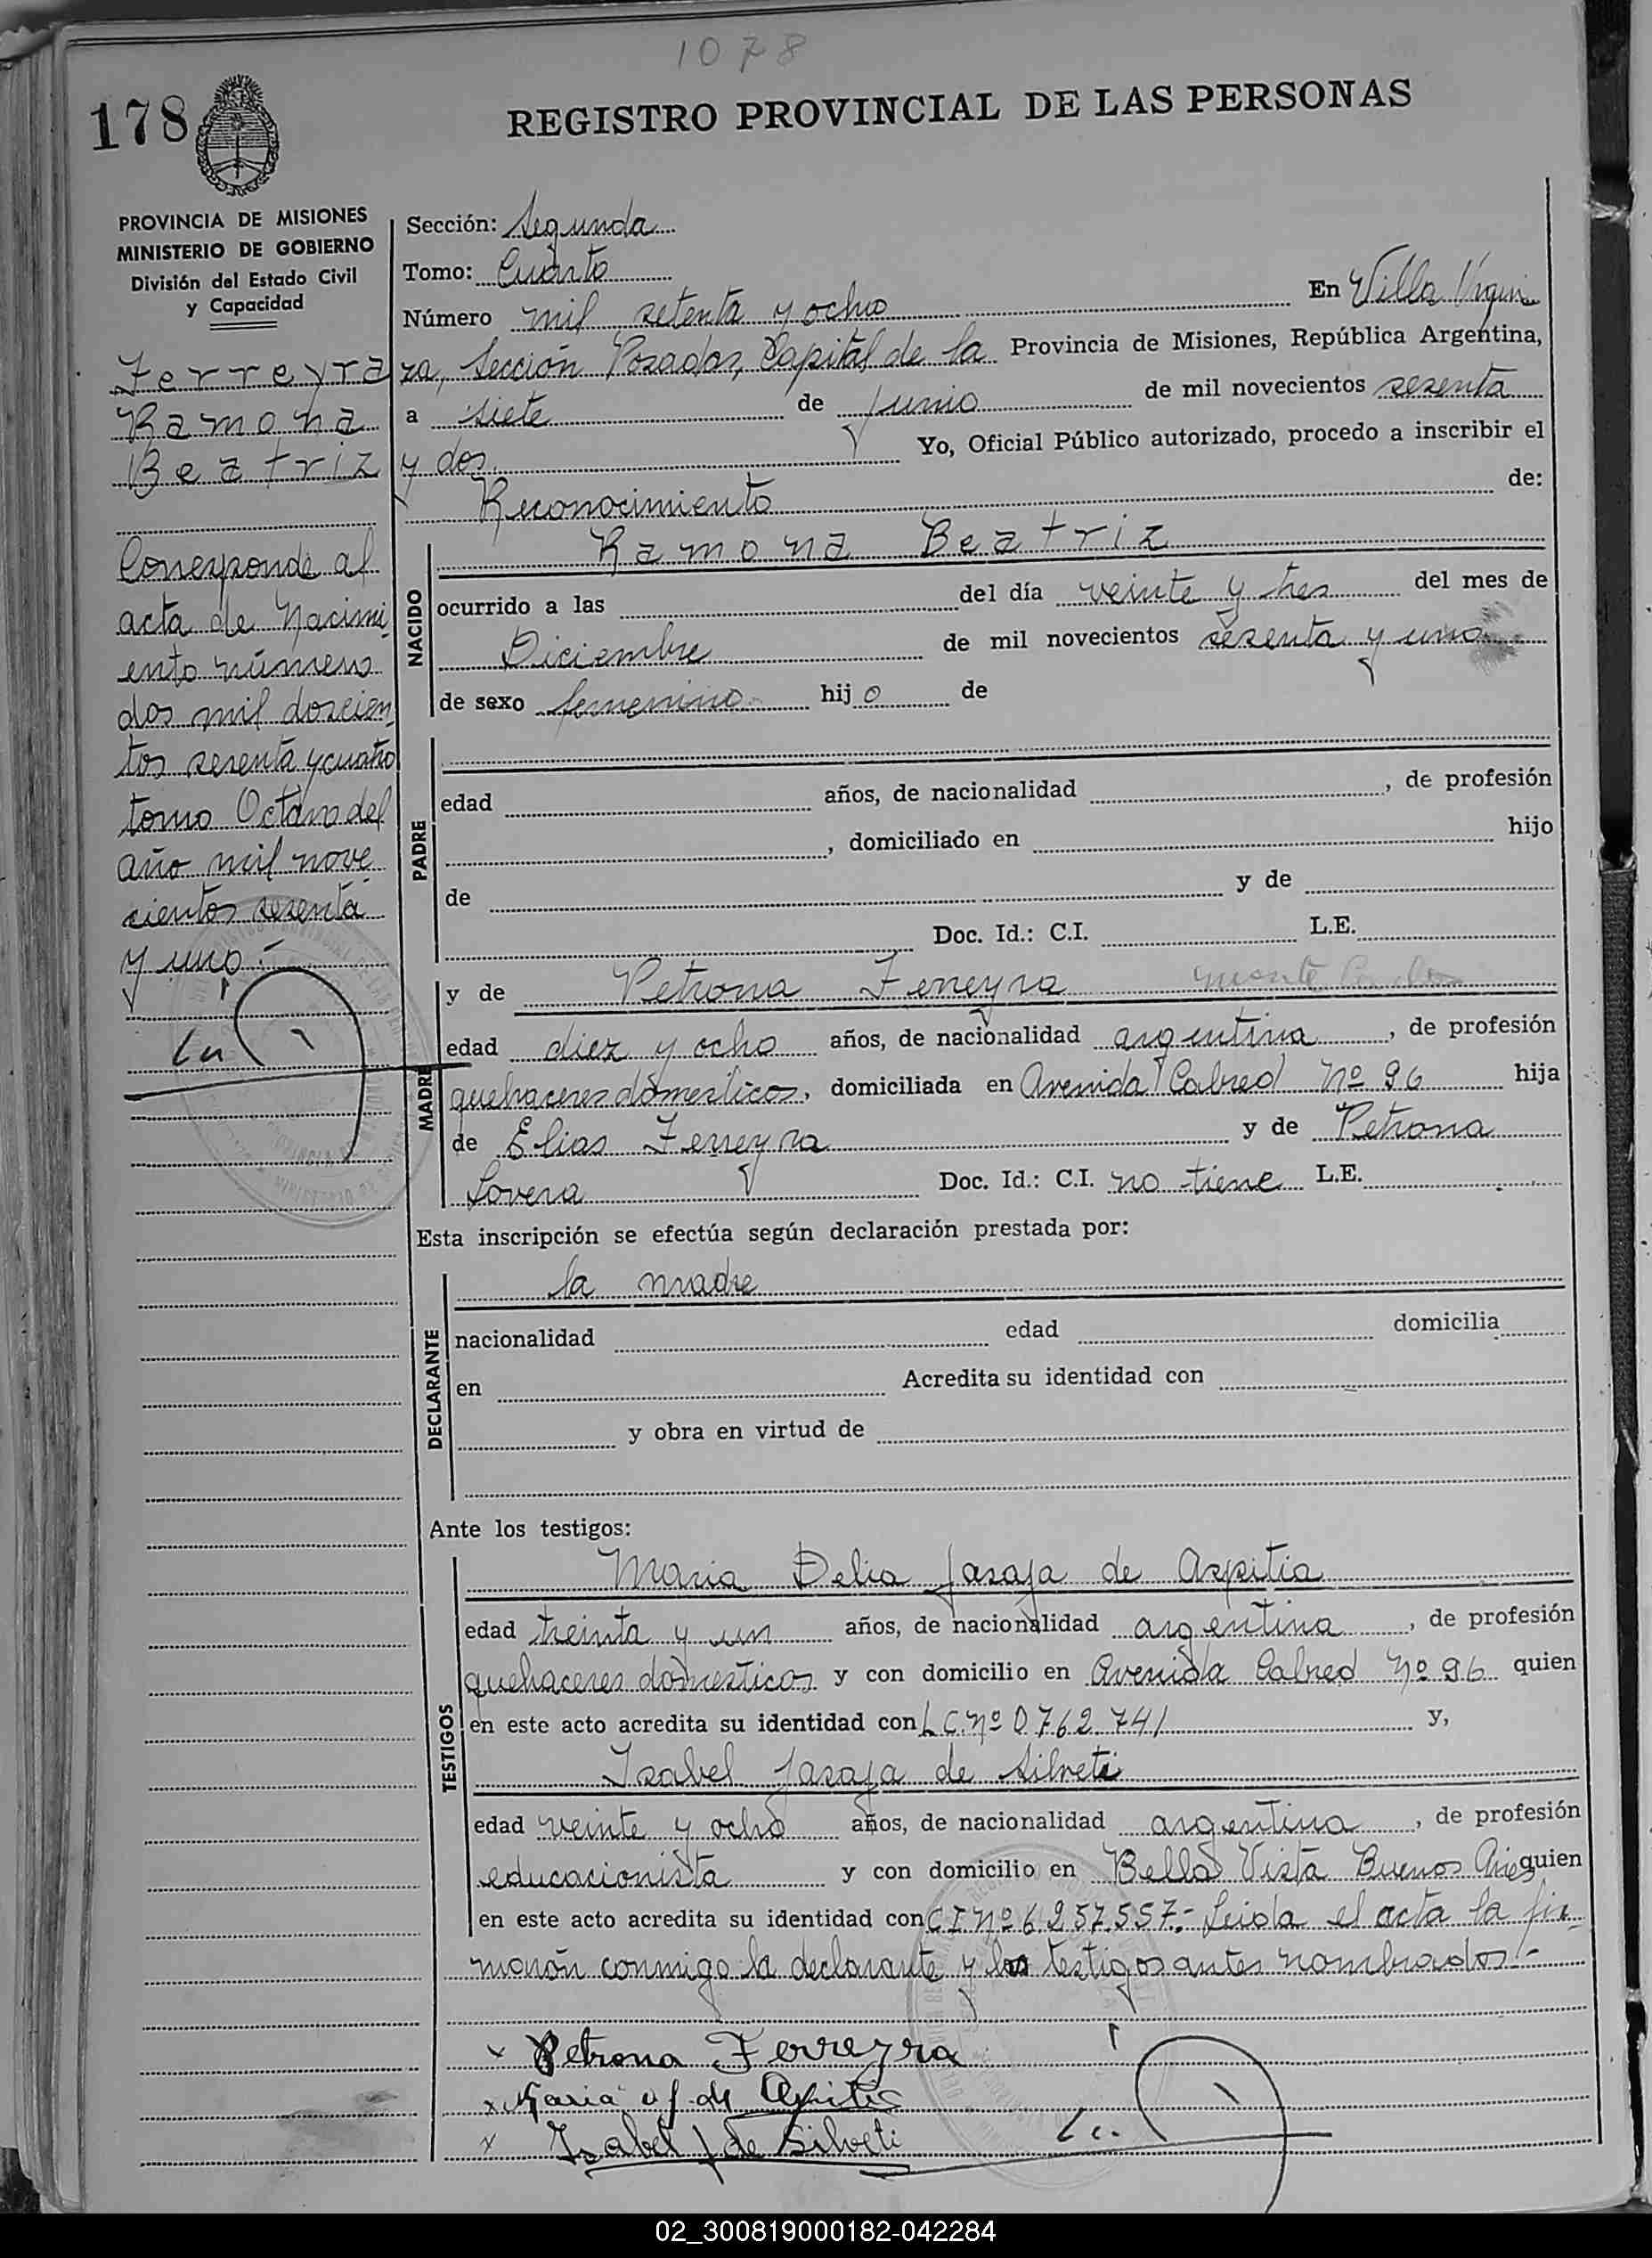 1078
178
REGISTRO PROVINCIAL DE LAS PERSONAS
PROVINCIA DE MISIONES
MINISTERIO DE GOBIERNO
División del Estado Civil
y Capacidad
Ferreyra
Ramona
Beatriz
Corresponde al
acta de Nacimi
ento número
dos mil doscien
tos sesenta y cuatro
tomo Octavo del
año mil nove
cientos sesenta
y uno.-
Sección: Segunda
Tomo: Cuarto
Número mil setenta y ocho En Villa Urqui
za, Sección Posadas, Capital de la Provincia de Misiones, República Argentina,
a siete de Junio de mil novecientos sesenta
y dos. Yo, Oficial Público autorizado, procedo a inscribir el
Reconocimiento de:
NACIDO
Ramona Beatriz
ocurrido a las del día veinte y tres del mes de
Diciembre de mil novecientos sesenta y uno
de sexo femenino hijo de
PADRE
edad años, de nacionalidad , de profesión
, domiciliado en hijo
de y de
Doc. Id.: C.I. L.E.
MADRE
y de Petrona Ferreyra
edad diez y ocho años, de nacionalidad argentina , de profesión
quehaceres domesticos, domiciliada en Avenida Cabred Nº 96 hija
de Elias Ferreyra y de Petrona
Lovera Doc. Id.: C.I. no tiene L.E.
Esta inscripción se efectúa según declaración prestada por:
DECLARANTE
la madre
nacionalidad edad domicilia
en Acredita su identidad con
y obra en virtud de
Ante los testigos:
TESTIGOS
Maria Delia Jasaja de Aspitia
edad treinta y un años, de nacionalidad argentina , de profesión
quehaceres domesticos y con domicilio en Avenida Cabred Nº 96 quien
en este acto acredita su identidad con L.C. Nº 0.762.741 y,
Isabel Jasaja de Silveti
edad veinte y ocho años, de nacionalidad argentina , de profesión
educacionista y con domicilio en Bella Vista Buenos Aires quien
en este acto acredita su identidad con C.I. Nº 6.257.557.- Leida el acta la fir
maron conmigo la declarante y los testigos antes nombrados.-
x Petrona Ferreyra
x Maria J. de Aspitia
x Isabel J. de Silveti
02_300819000182-042284